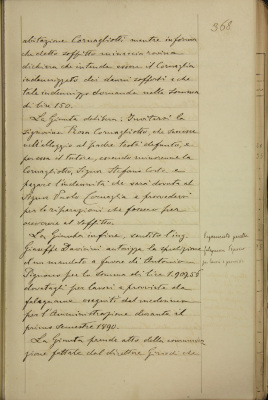 368
abitazione Cornagliotti mentre informa
che detto soffitto minaccia rovina
dichiara che intende essere il Comaglia
indennizzato dei danni sofferti e che
tale indennizzo domanda nella somma
di lire 150.
La Giunta delibera: Invitarsi la
Signorina Rosa Cornagliotti, che successe
nell'alloggio al padre testè defunto, e
per essa il tutore, secondo
Cornagliotto, Signor Stefano a
pagare l'indennità che sarà dovuta al
Signor Paolo Comaglia e provvedersi
per le riparazioni che fossero per
al soffitto.
La Giunta infine, sentito l'ing.
Giuseppe autorizza la spedizione
d'un mandato a favore di Antonio
per la somma di lire 1.907,56
dovutagli per lavori e provviste da
falegname eseguiti dal medesimo
per l'Amministrazione durante il
primo semestre 1890.
La Giunta prende atto della comunica
zione fattale dal direttore che